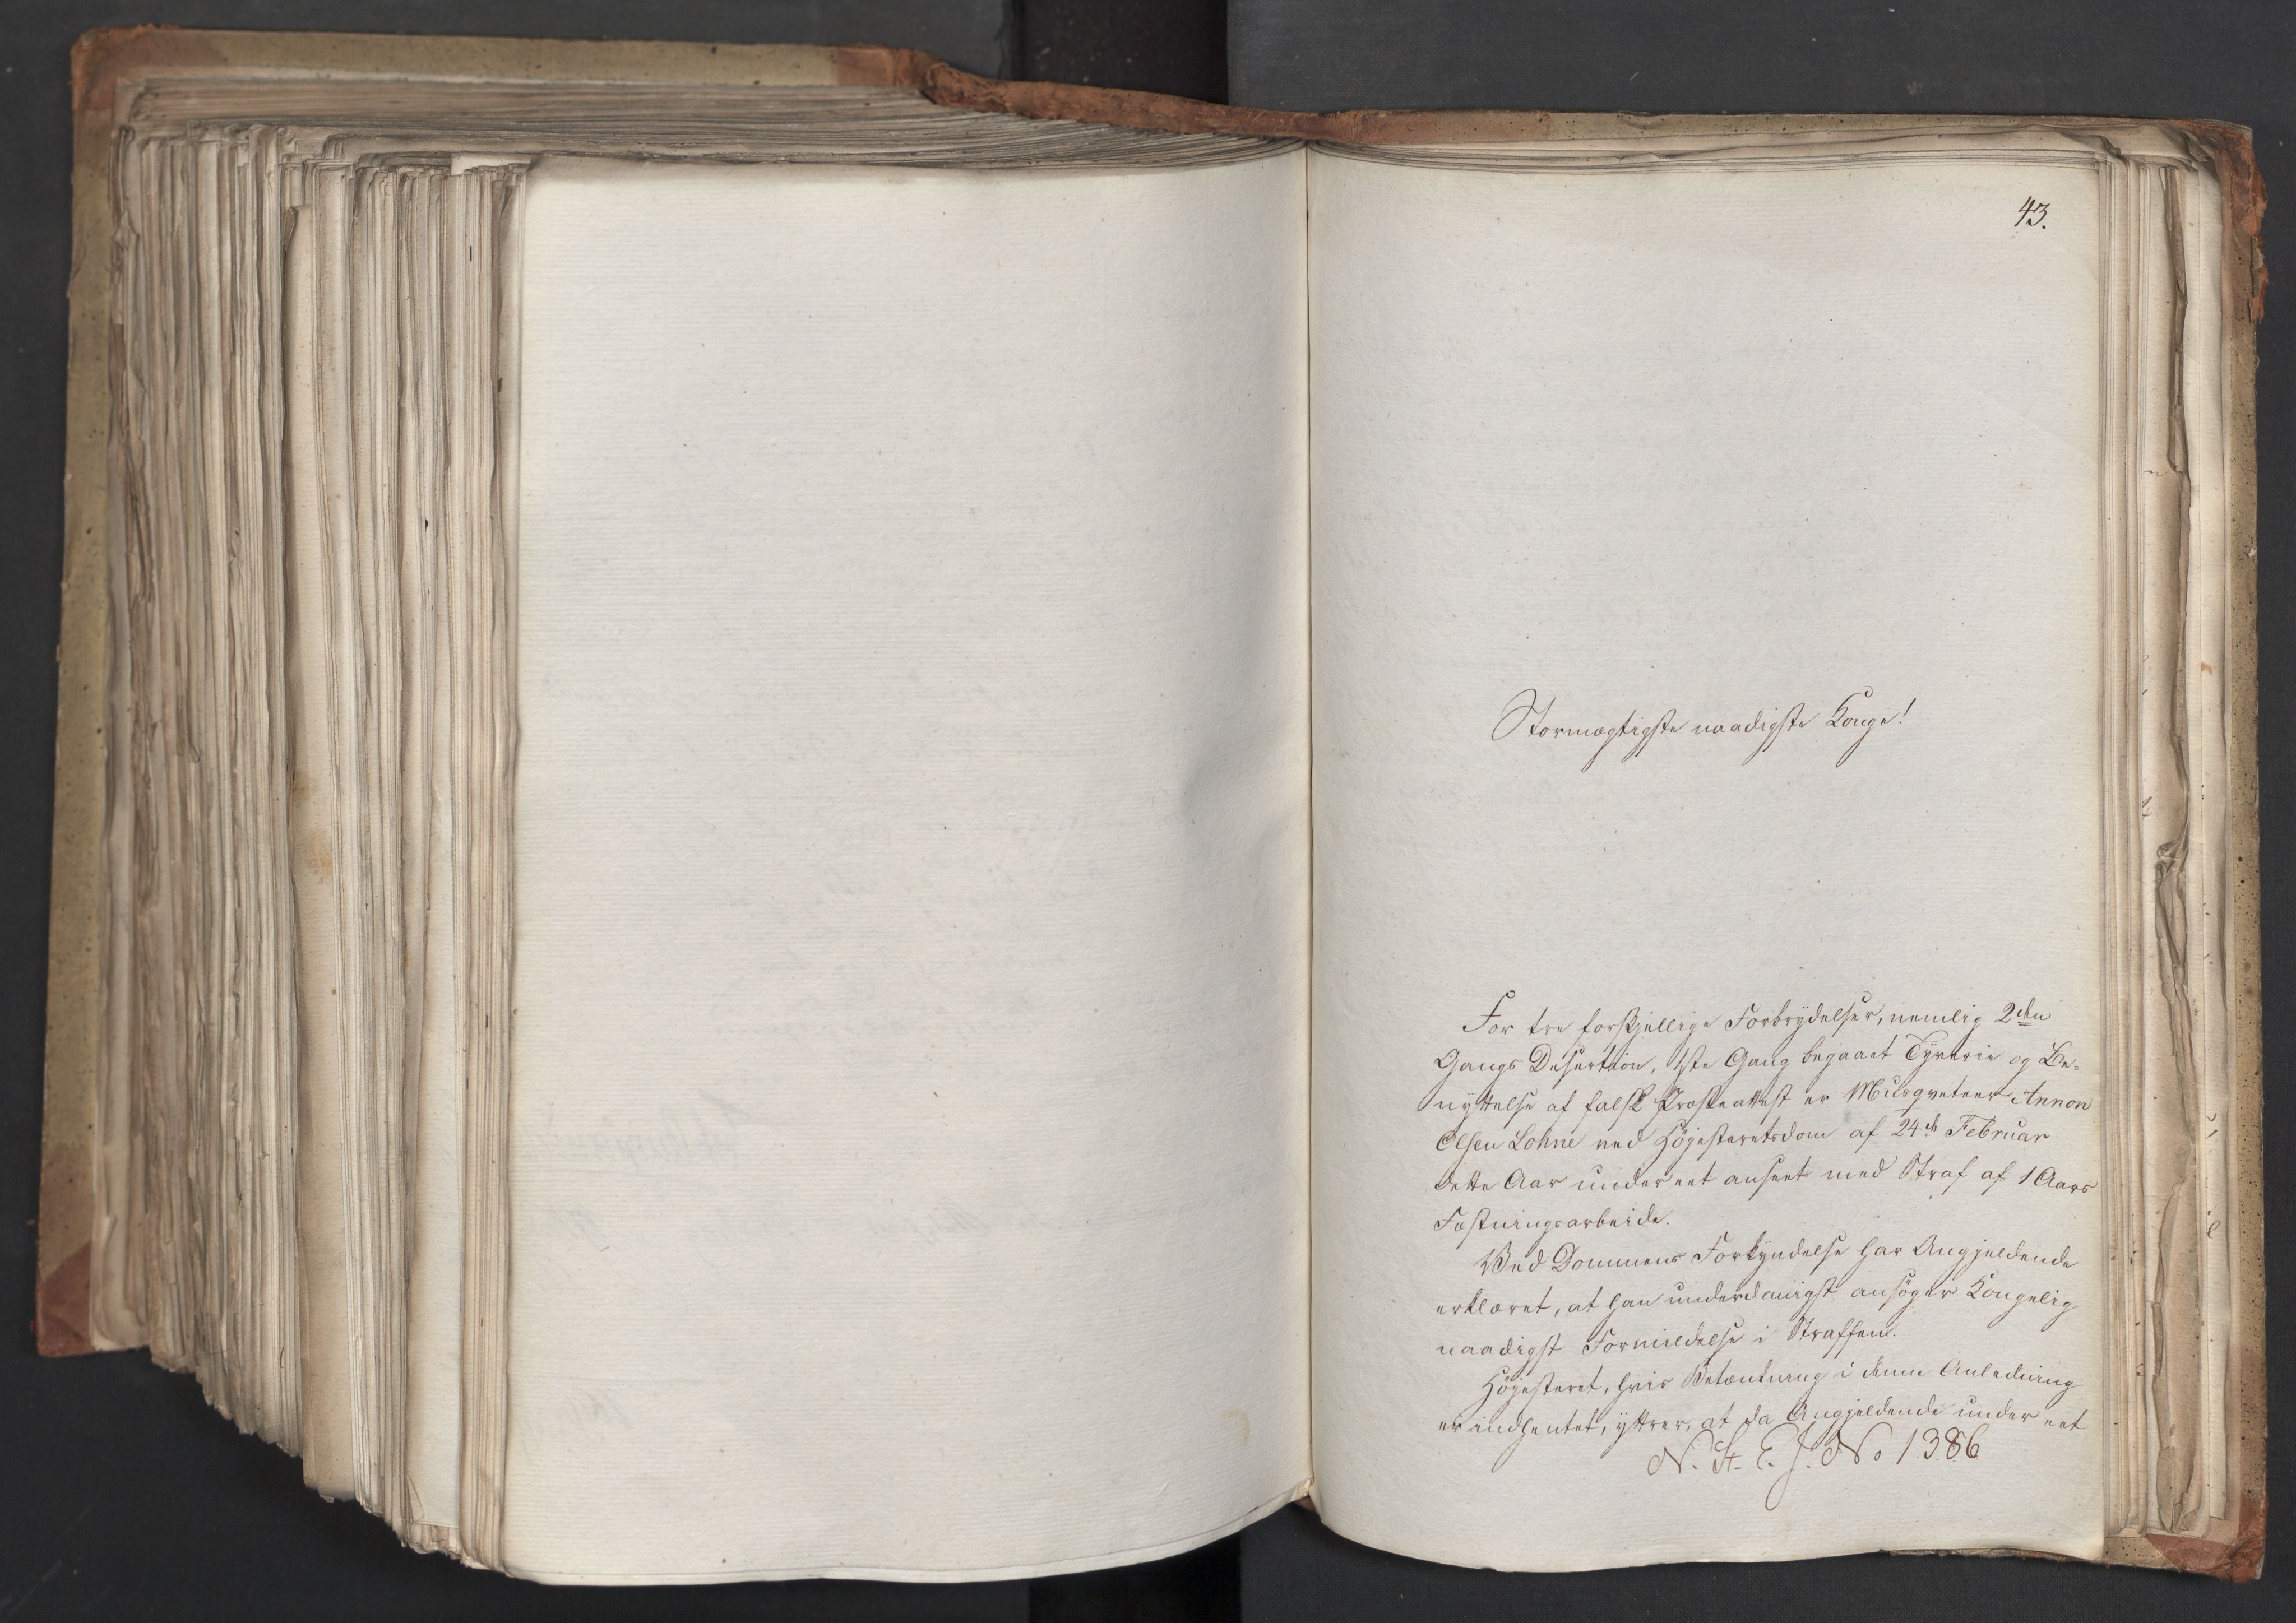 43.
Stormægtigste naadigste Konge!
For tre forskjellige Forbrydelser, nemlig 2den
Gangs Desertion, 1ste Gang begaaet Tyverie og Be-
nyttelse af falsk Præsteattest er Musqueteer Annon
Olsen Lohne ved Höjesteretsdom af 24de Februar
dette Aar under eet anseet med Straf af 1 Aars
Fæstningsarbeide.
Ved Dommens Forkyndelse har Angjeldende
erklæret, at han underdanigst ansöger Kongelig
naadigst Formildelse i Straffen.
Höjesteret, hvis Betænkning i denne Anledning
er indhentet, yttrer, at da Angjeldende under eet
N. St. E. J. No 1386